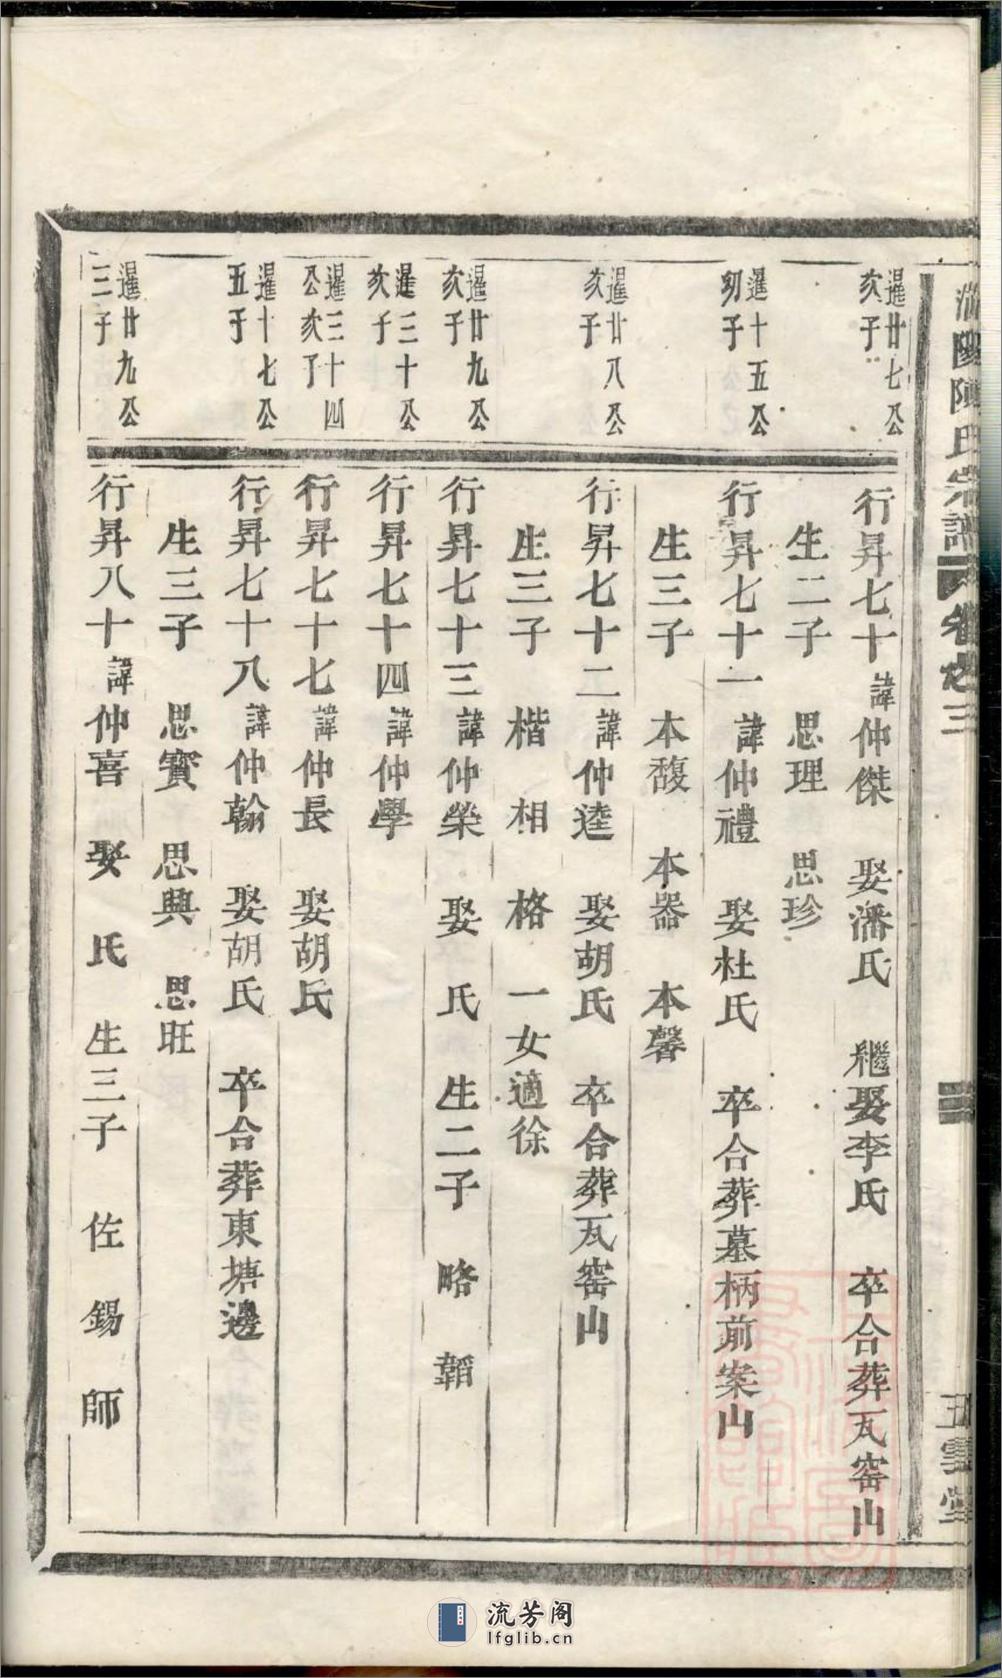 陳氏宗譜 卷之三
五雲堂
暹廿七公
亥子
行昇七十 諱仲傑 娶潘氏 繼娶李氏 卒合葬瓦窑山
生二子 思理 思珍
暹十五公
初子
行昇七十一 諱仲禮 娶杜氏 卒合葬墓柄前案山
生三子 本馥 本器 本馨
暹廿八公
亥子
行昇七十二 諱仲逵 娶胡氏 卒合葬瓦窑山
生三子 楷 相 格 一女適徐
暹廿九公
亥子
行昇七十三 諱仲榮 娶 氏 生二子 略 韜
暹三十公
亥子
行昇七十四 諱仲學
暹三十四
公亥子
行昇七十七 諱仲長 娶胡氏
暹十七公
五子
行昇七十八 諱仲翰 娶胡氏 卒合葬東塘邊
生三子 思寶 思興 思旺
暹廿九公
三子
行昇八十 諱仲喜 娶 氏 生三子 佐 錫 師
流芳阁
lfglib.cn